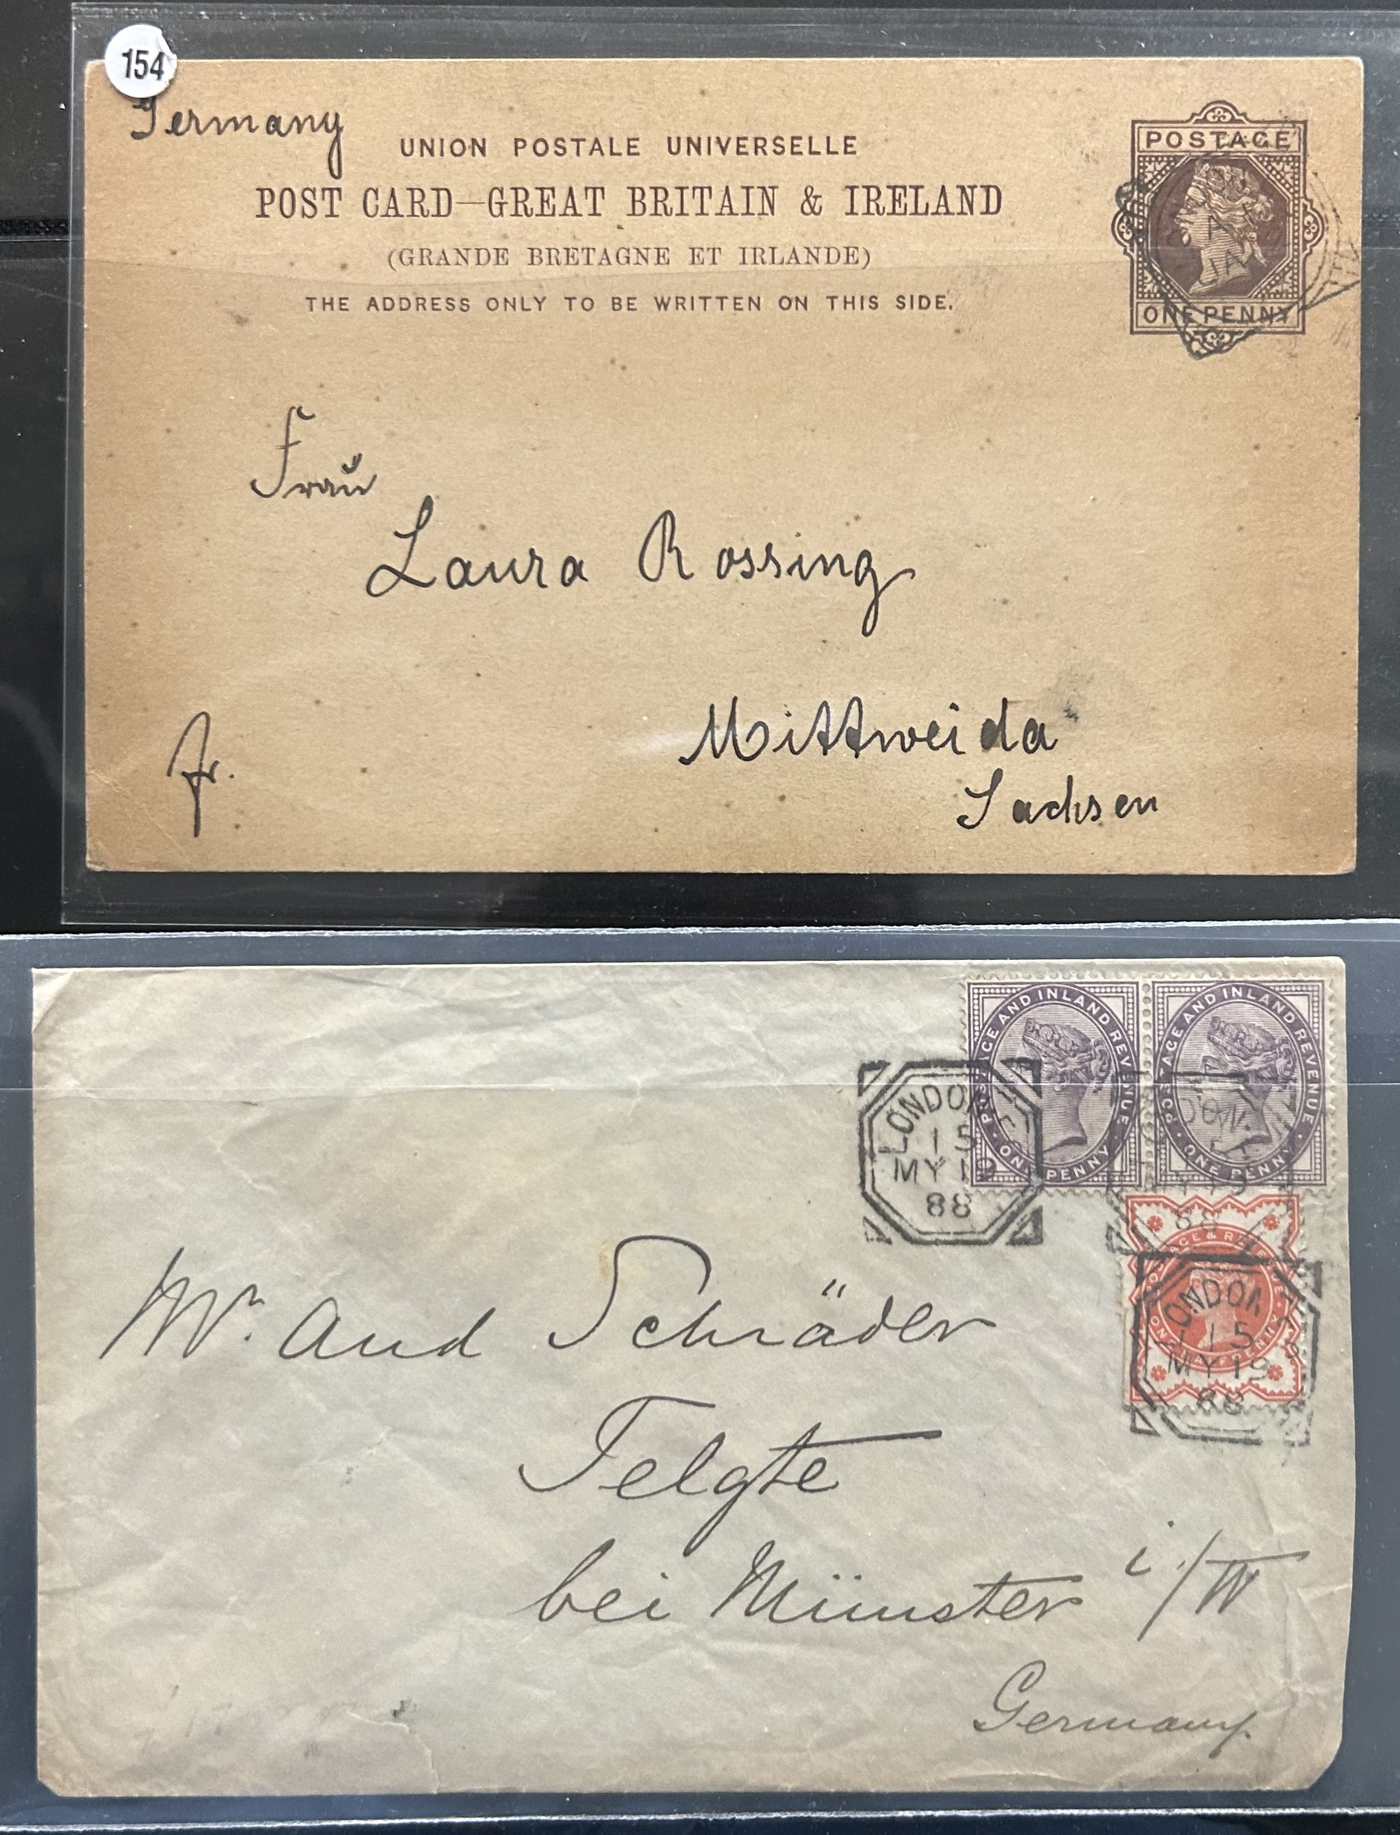 154
Germany
UNION POSTALE UNIVERSELLE
POST CARD—GREAT BRITAIN & IRELAND
(GRANDE BRETAGNE ET IRLANDE)
THE ADDRESS ONLY TO BE WRITTEN ON THIS SIDE.
POSTAGE
ONE PENNY
Frau
Laura Rossing
Mittweida
Sachsen
fr.
POSTAGE AND INLAND REVENUE
ONE PENNY
POSTAGE AND INLAND REVENUE
ONE PENNY
LONDON
15
MY 19
88
MY 19
88
LONDON
15
MY 19
88
Schräder
Telgte
bei Münster i/W
Germany